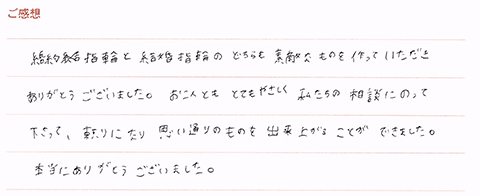 ご感想
婚約指輪と結婚指輪のどちらも素敵なものを作っていただき
ありがとうございました。お二人とも とてもやさしく 私たちの相談にのって
下さって、頼りになり 思い通りのものを出来上がることができました。
本当にありがとうございました。